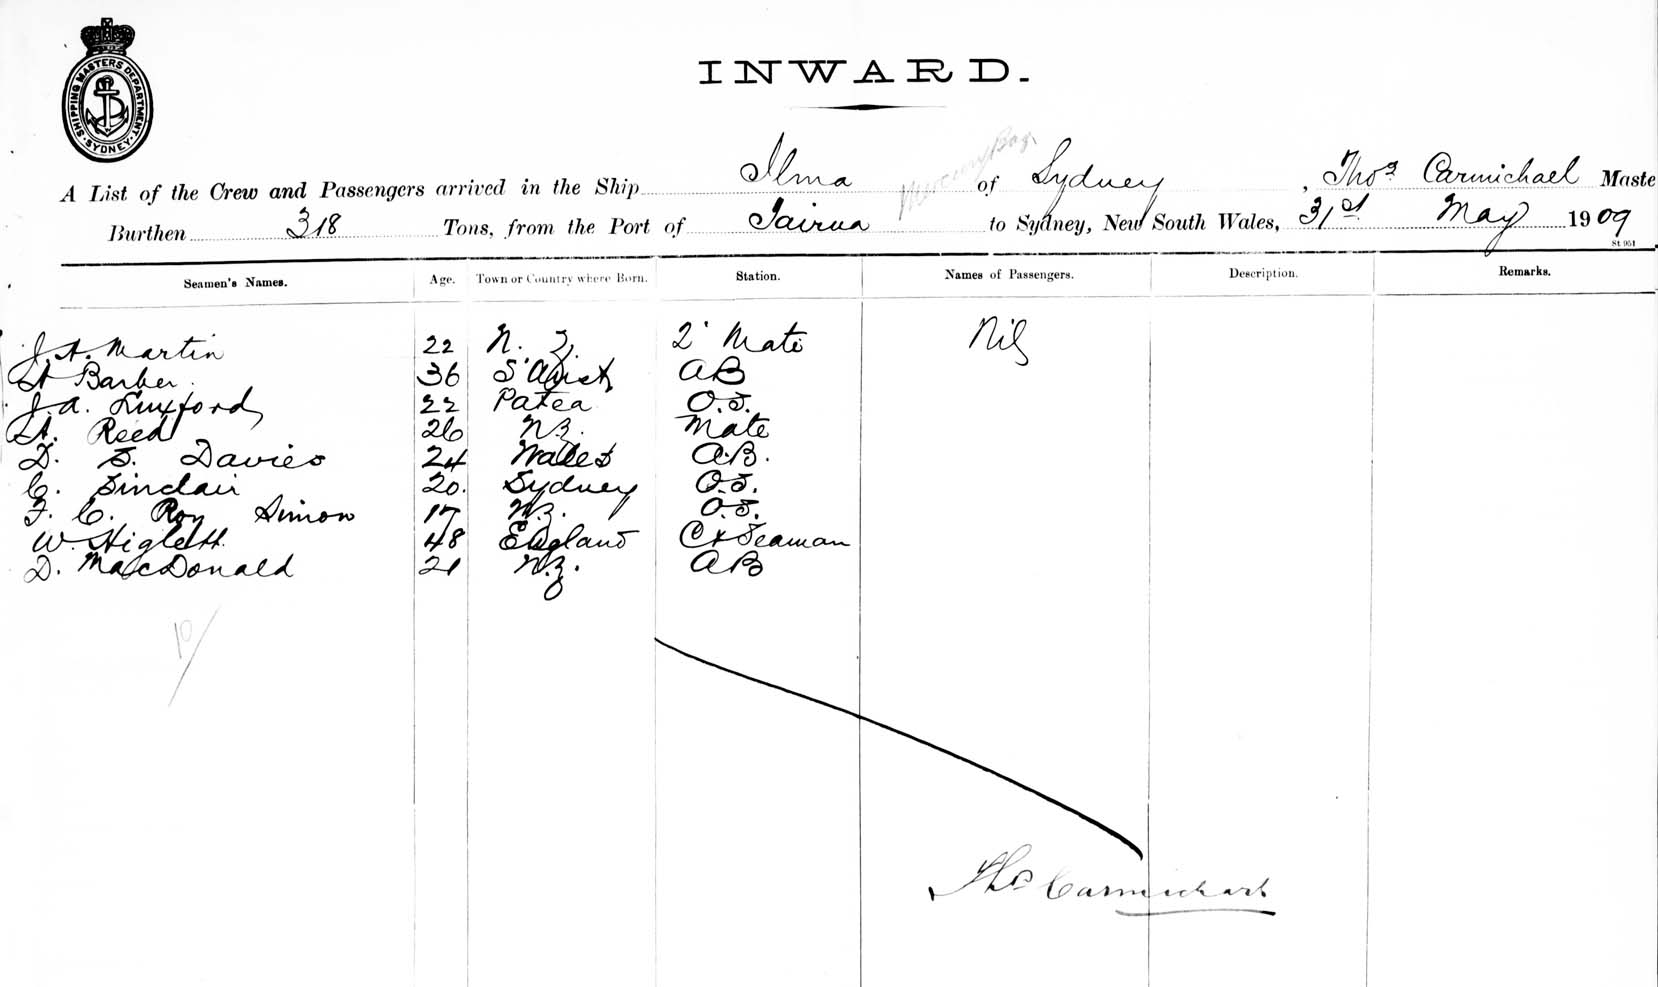 SHIPPING MASTERS DEPARTMENT
SYDNEY
INWARD.
Mercury Bay
A List of the Crew and Passengers arrived in the Ship Ilma of Sydney, Thos Carmichael Maste
Burthen 318 Tons, from the Port of Tairua to Sydney, New South Wales, 31st May 1909
St 951
Seamen's Names. Age. Town or Country where Born. Station. Names of Passengers. Description. Remarks.
J. A. Martin 22 N. Z. 2' Mate Nil
A Barber. 36 S' Aust AB
J. A. Luxford 22 Patea O.S.
A. Reed 26 N.Z. Mate
D. S. Davies 24 Wales A.B.
C. Sinclair 20. Sydney O.S.
F. C. Roy Simon 17 N.Z. O.S.
W. Higlett 48 England Seaman
D. MacDonald 21 N.Z. AB
10/
Thos Carmichael